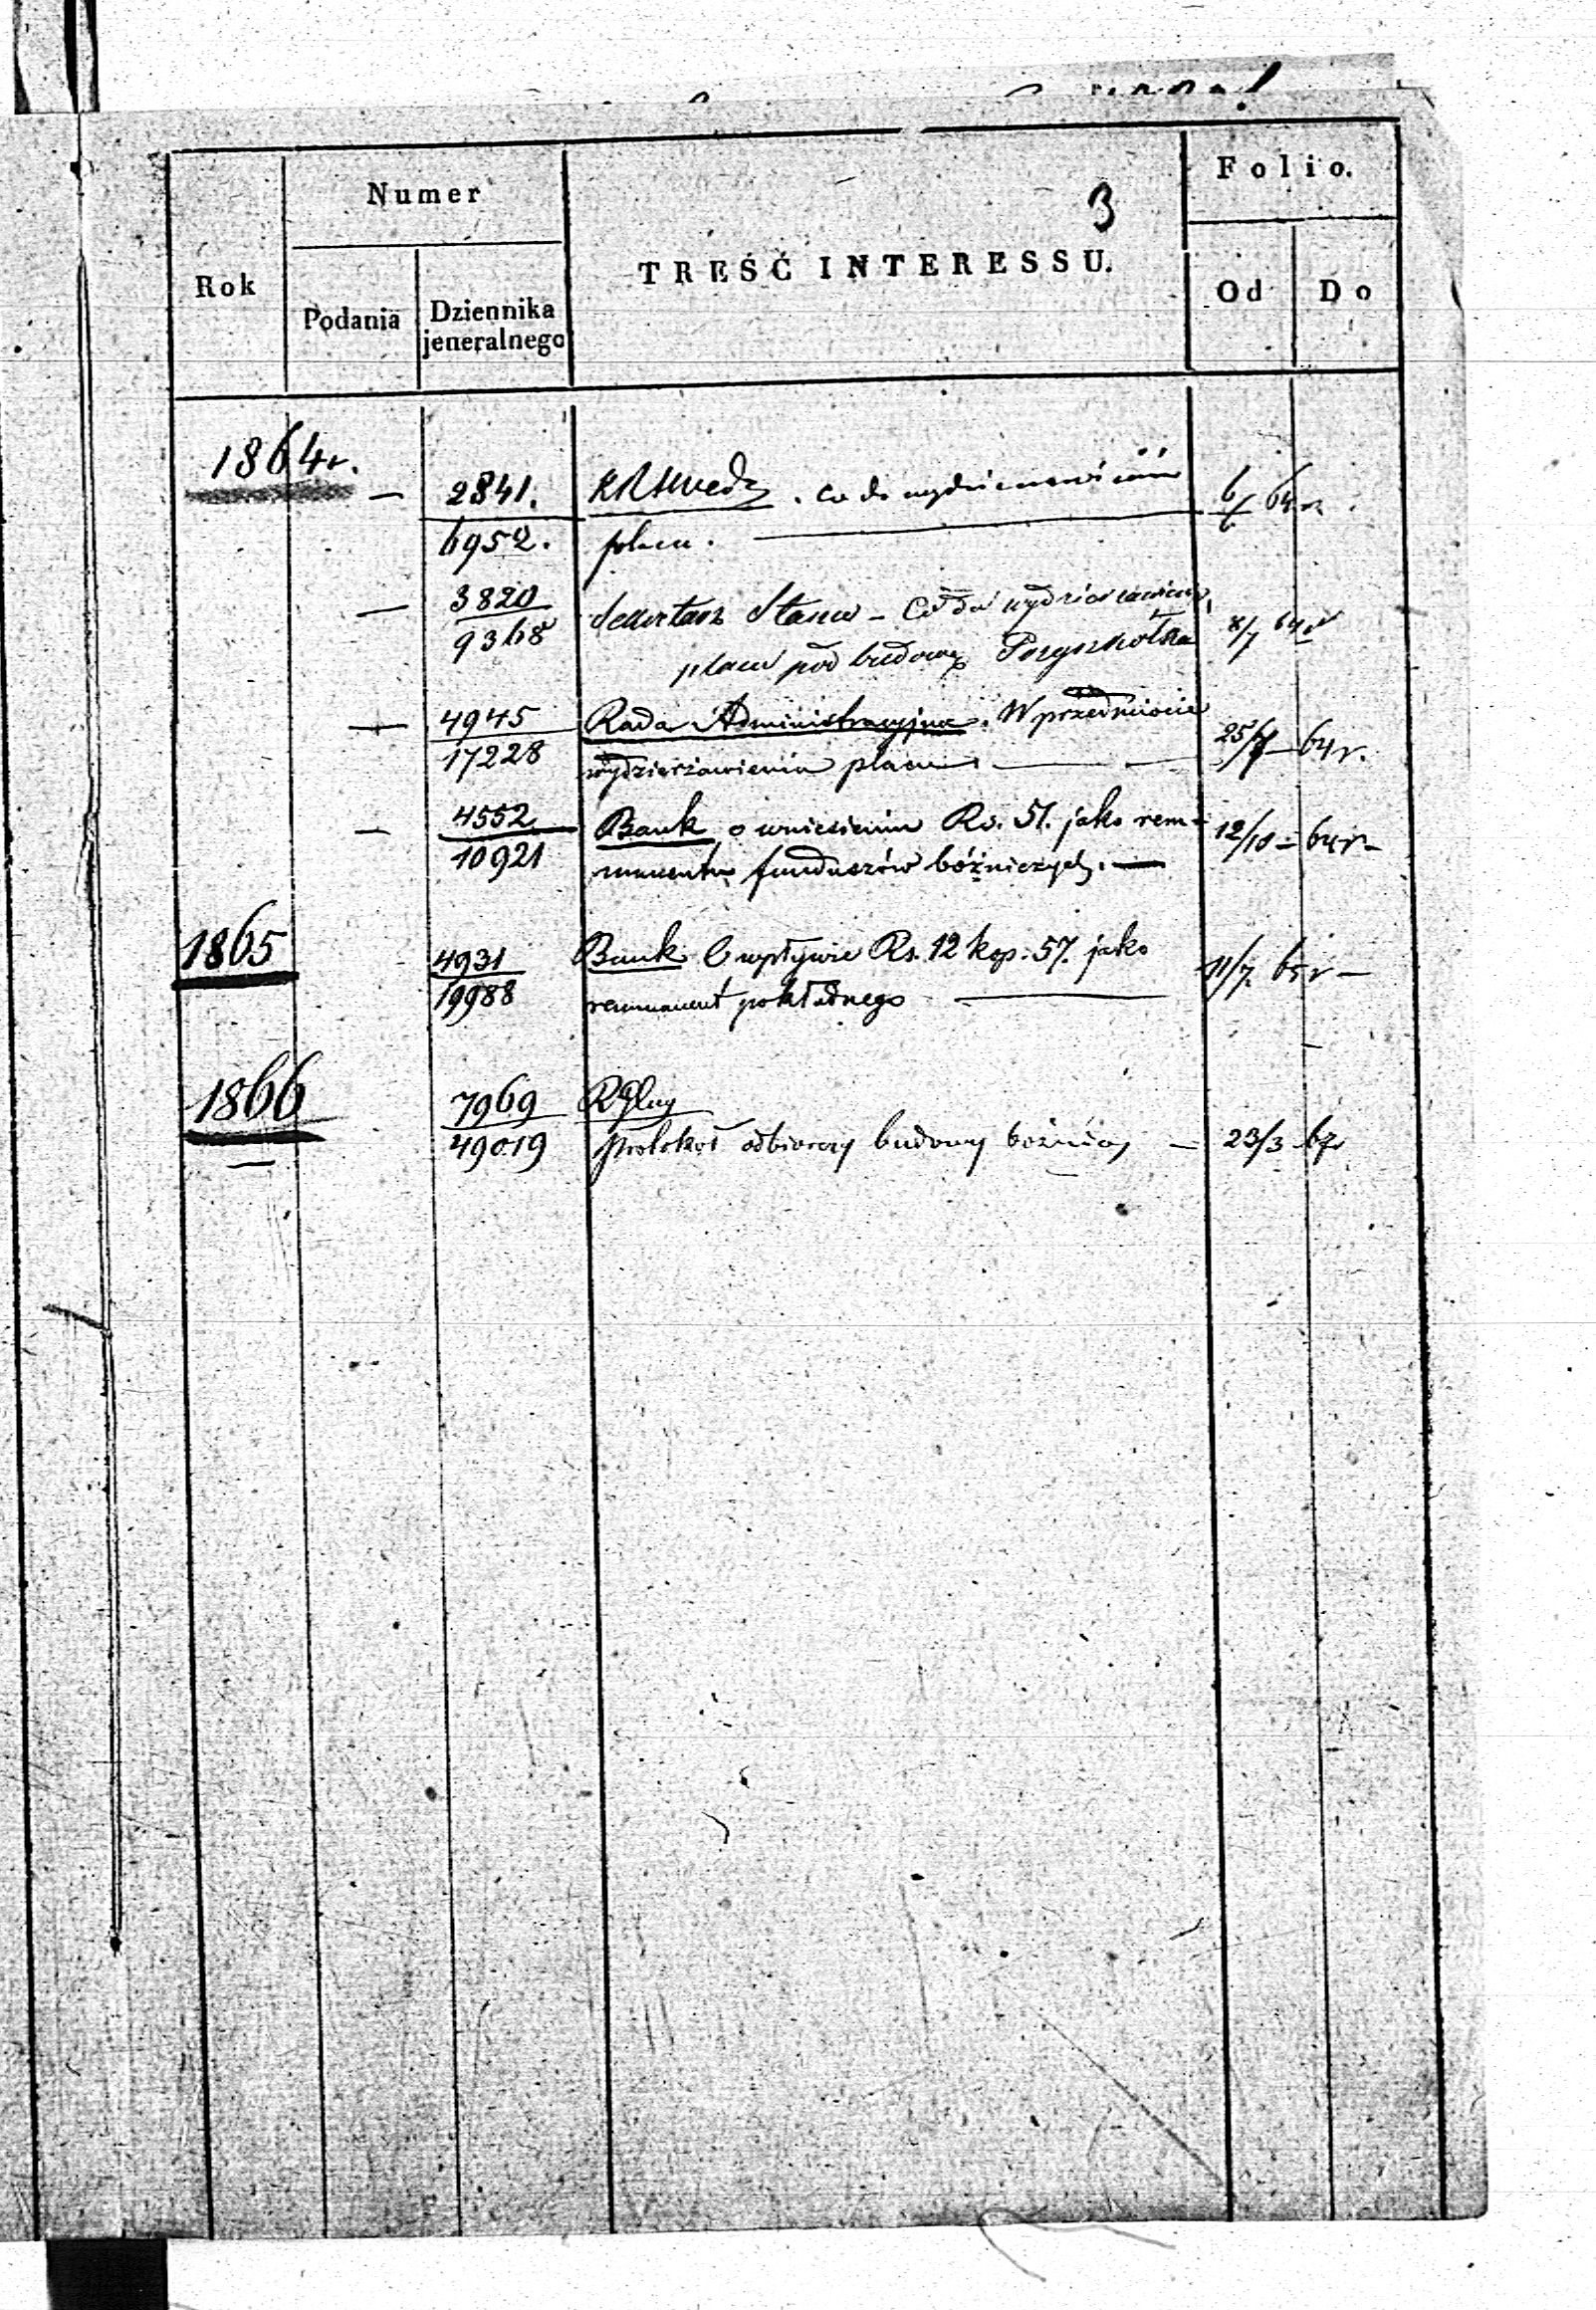 3
Rok
Numer
Podania
Dziennika
jeneralnego
TREŚĆ INTERESSU.
Folio.
Od
Do
1864r.
— 2841. Co do wydzierżawienia 6/6 64r.
6952. placu. —
— 3820 Sekretarz Stanu - Co do wydzierżawienia 8/7 64r
9368 placu pod budowę
— 4945 Rada Administracyjna. W przedmiocie
17228 wydzierżawienia placu. — — 25/7 — 64r.
— 4552 Bank o wniesieniu Rs. 51. jako rem- 12/10 - 64r -
10921 manentu funduszów bóżniczych. —
1865
4931 Bank O wpływie Rs. 12 kop. 57. jako 11/7. 65r —
19988 remmanent pokładnego —
1866
7969
49019 protokół odbiorczy budowy bóżnicy — 23/3 67r